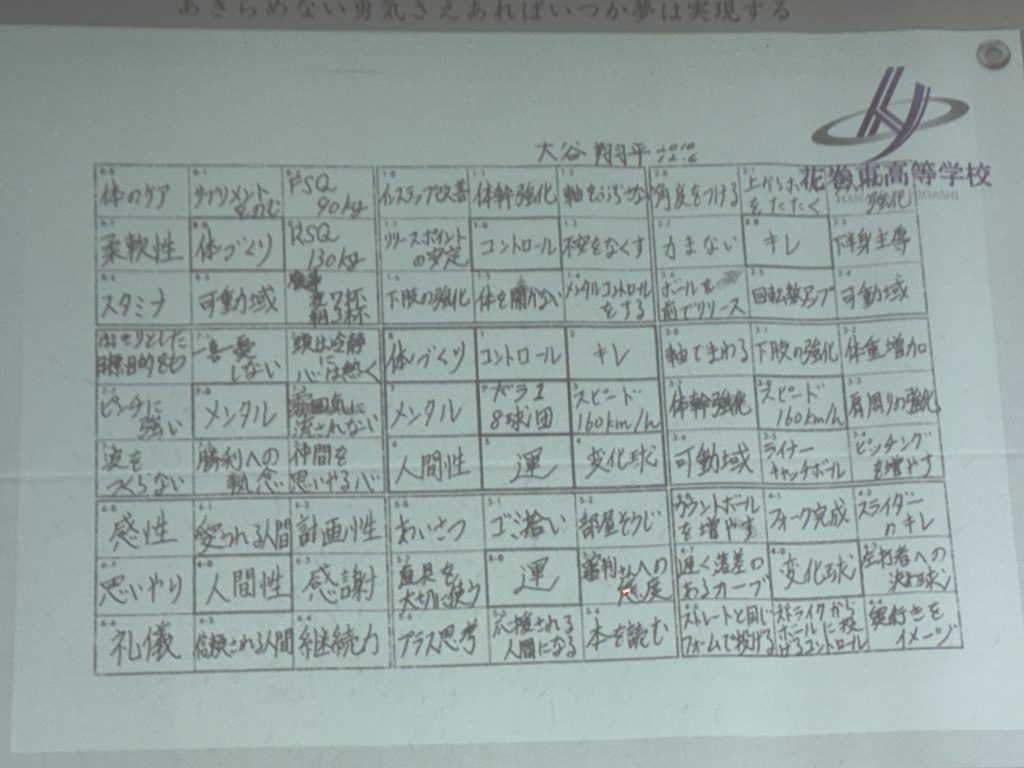 あきらめない勇気さえあればいつか夢は実現する
大谷 翔平
花巻東高等学校
体のケア サプリメントをのむ FSQ 90kg インステップ改善 体幹強化 軸をぶらさない 角度をつける 上からボールをたたく 強化
柔軟性 体づくり RSQ 130kg リリースポイントの安定 コントロール 不安をなくす 力まない キレ 下半身主導
スタミナ 可動域 夜7杯 朝3杯 下肢の強化 体を開かない メンタルコントロールをする ボールを前でリリース 回転数アップ 可動域
はっきりとした目標、目的をもつ 一喜一憂しない 頭は冷静に心は熱く 体づくり コントロール キレ 軸でまわる 下肢の強化 体重増加
ピンチに強い メンタル 雰囲気に流されない メンタル ドラ1 8球団 スピード 160km/h 体幹強化 スピード 160km/h 肩周りの強化
波をつくらない 勝利への執念 仲間を思いやる心 人間性 運 変化球 可動域 ライナーキャッチボール ピッチングを増やす
感性 愛される人間 計画性 あいさつ ゴミ拾い 部屋そうじ カウントボールを増やす フォーク完成 スライダーのキレ
思いやり 人間性 感謝 道具を大切に使う 運 審判さんへの態度 遅く落差のあるカーブ 変化球 左打者への決め球
礼儀 信頼される人間 継続力 プラス思考 応援される人間になる 本を読む ストレートと同じフォームで投げる ストライクからボールに投げるコントロール 奥行きをイメージ